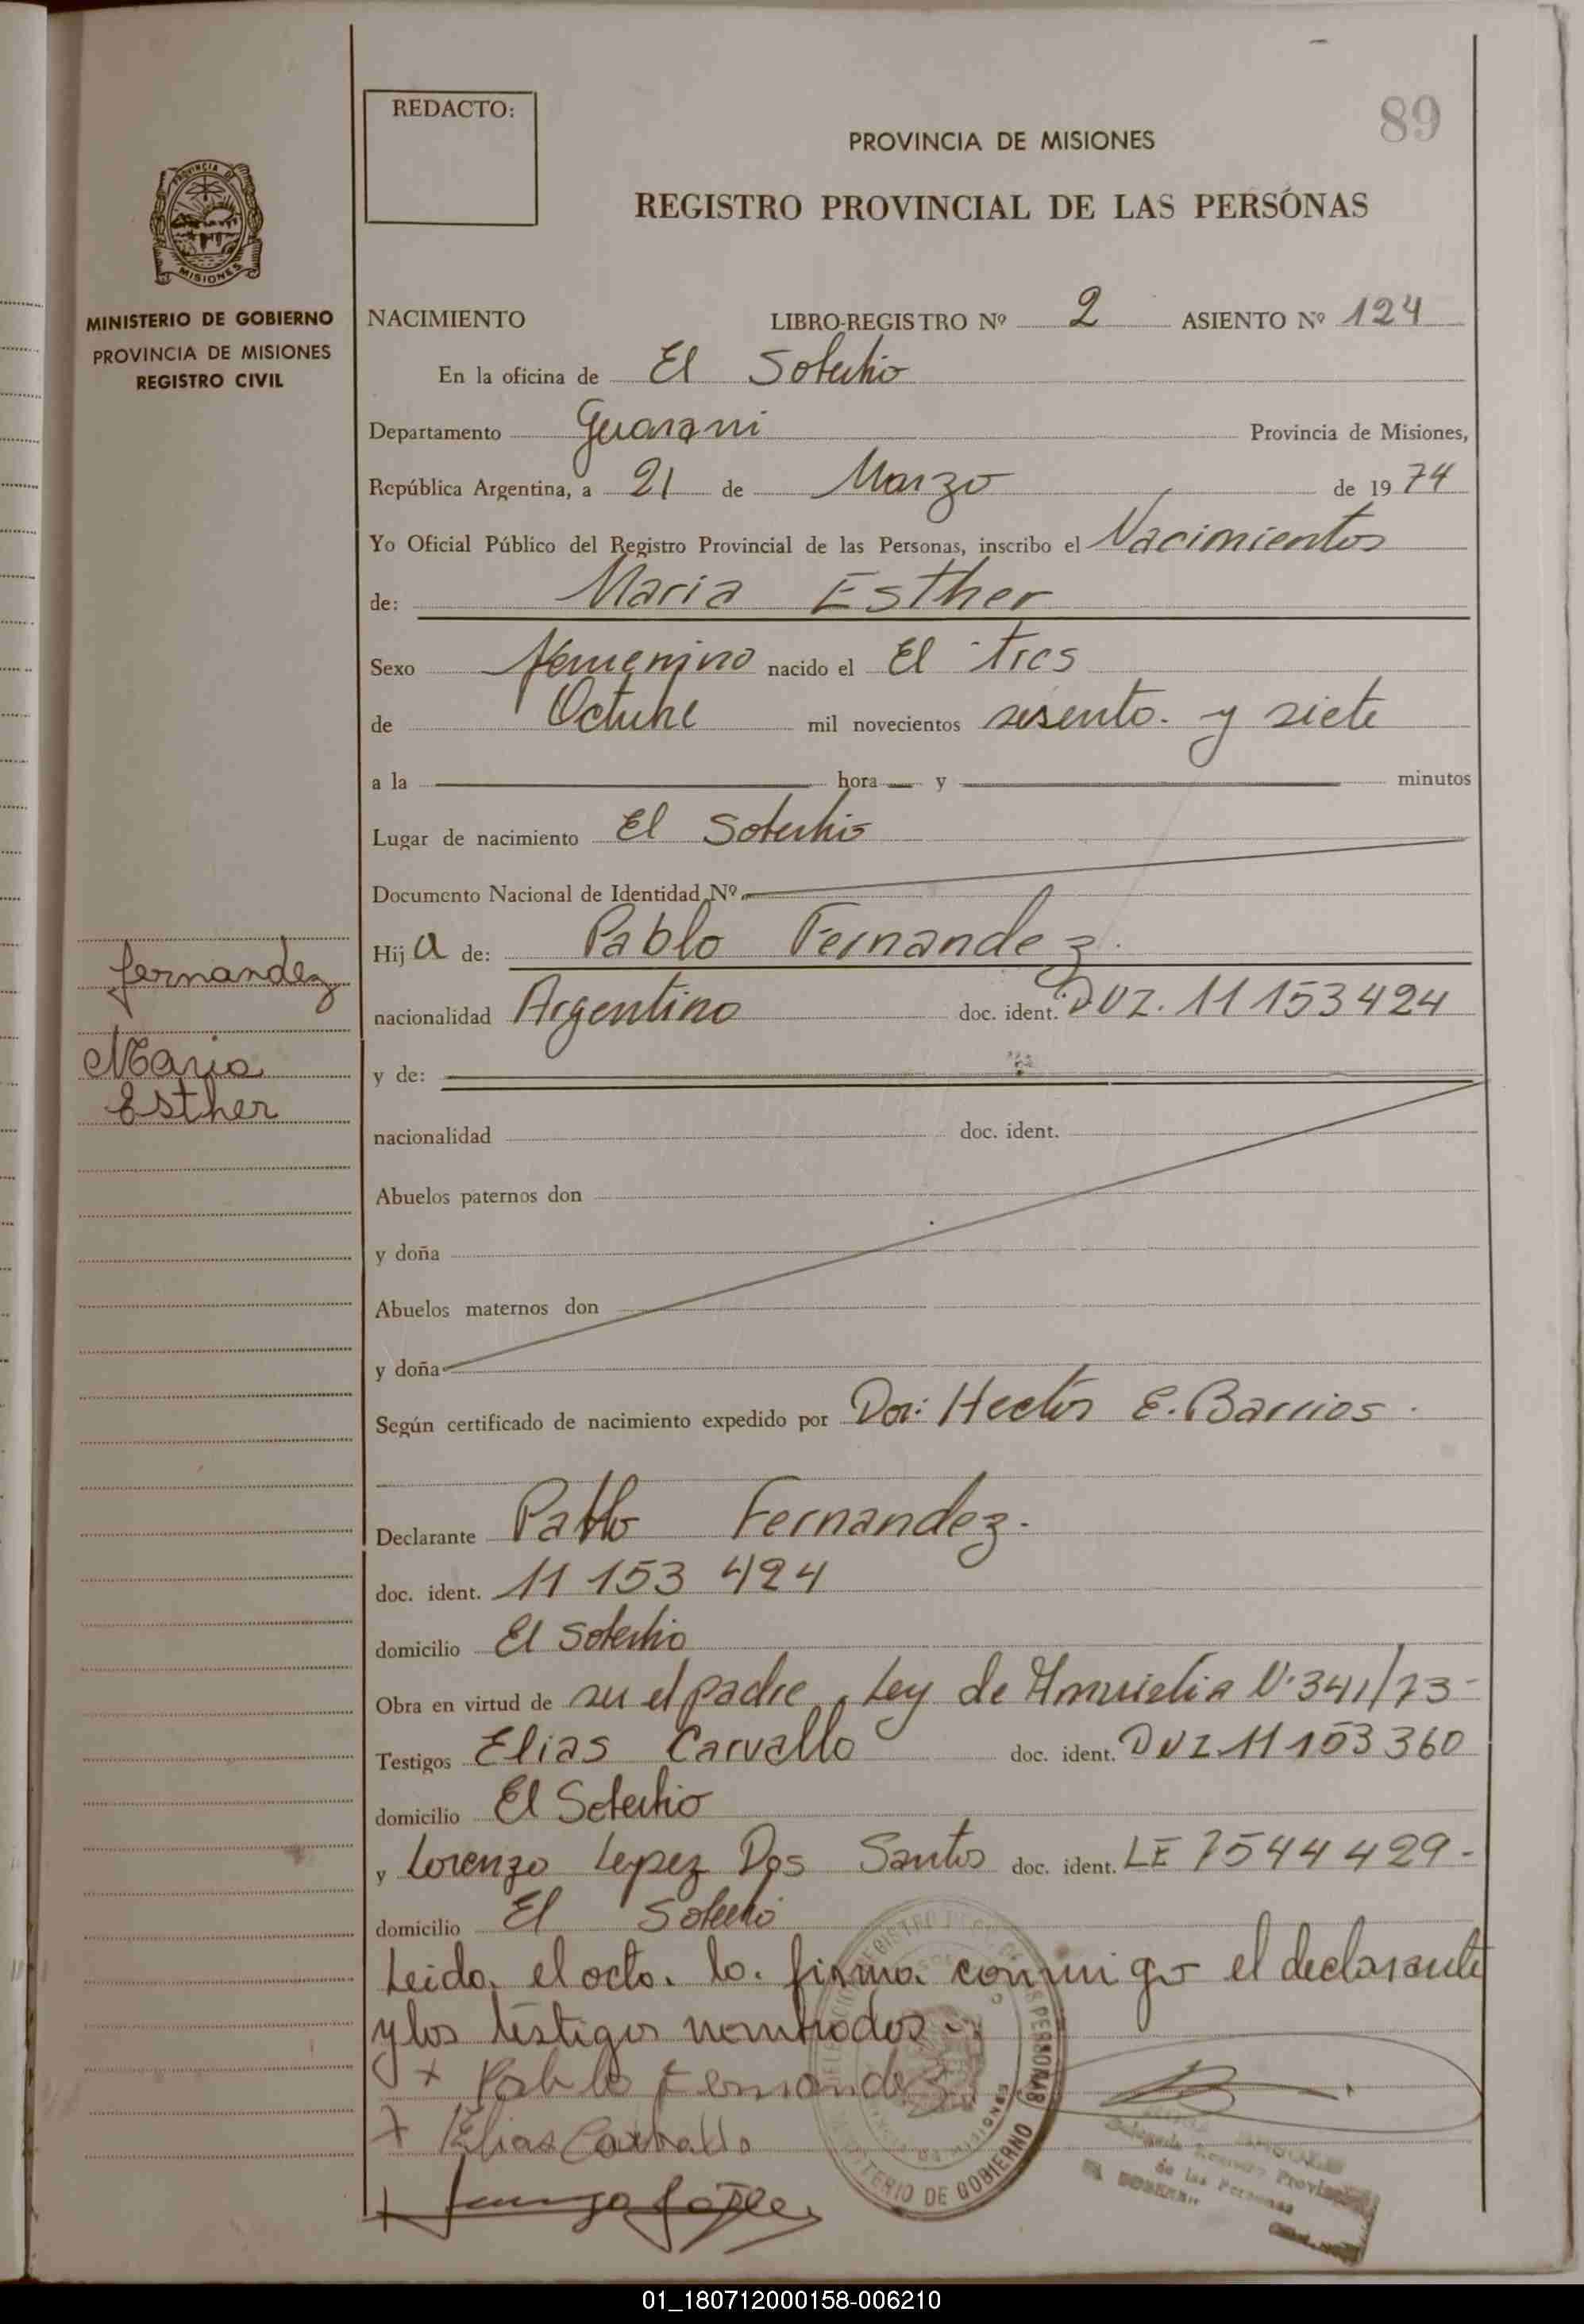 89
REDACTO:
PROVINCIA DE MISIONES
REGISTRO PROVINCIAL DE LAS PERSONAS
PROVINCIA DE
MISIONES
MINISTERIO DE GOBIERNO
PROVINCIA DE MISIONES
REGISTRO CIVIL
NACIMIENTO LIBRO-REGISTRO Nº 2 ASIENTO Nº 124
En la oficina de El Soberbio
Departamento Guarani Provincia de Misiones,
República Argentina, a 21 de Marzo de 1974
Yo Oficial Público del Registro Provincial de las Personas, inscribo el Nacimientos
de: Maria Esther
Sexo femenino nacido el El tres
de Octubre mil novecientos sesenta y siete
a la hora y minutos
Lugar de nacimiento El Soberbio
Documento Nacional de Identidad Nº
Hija de: Pablo Fernandez
nacionalidad Argentino doc. ident. DNI. 11 153 424
fernandez
Maria
Esther
y de:
nacionalidad doc. ident.
Abuelos paternos don
y doña
Abuelos maternos don
y doña
Según certificado de nacimiento expedido por Dor: Hector E. Barrios.
Declarante Pablo Fernandez.
doc. ident. 11 153 424
domicilio El Soberbio
Obra en virtud de ser el padre, Ley de Amnistia Nº 341/73-
Testigos Elias Carvallo doc. ident. DNI 11 153 360
domicilio El Soberbio
y Lorenzo Lopez Dos Santos doc. ident. LE 7544429-
domicilio El Soberbio
Leida el acta la firma conmigo el declarante
y los testigos nombrados.-
+ Pablo Fernandez
+ Elias Carballo
MINISTERIO DE GOBIERNO
Registro Provincial
de las Personas
01_180712000158-006210